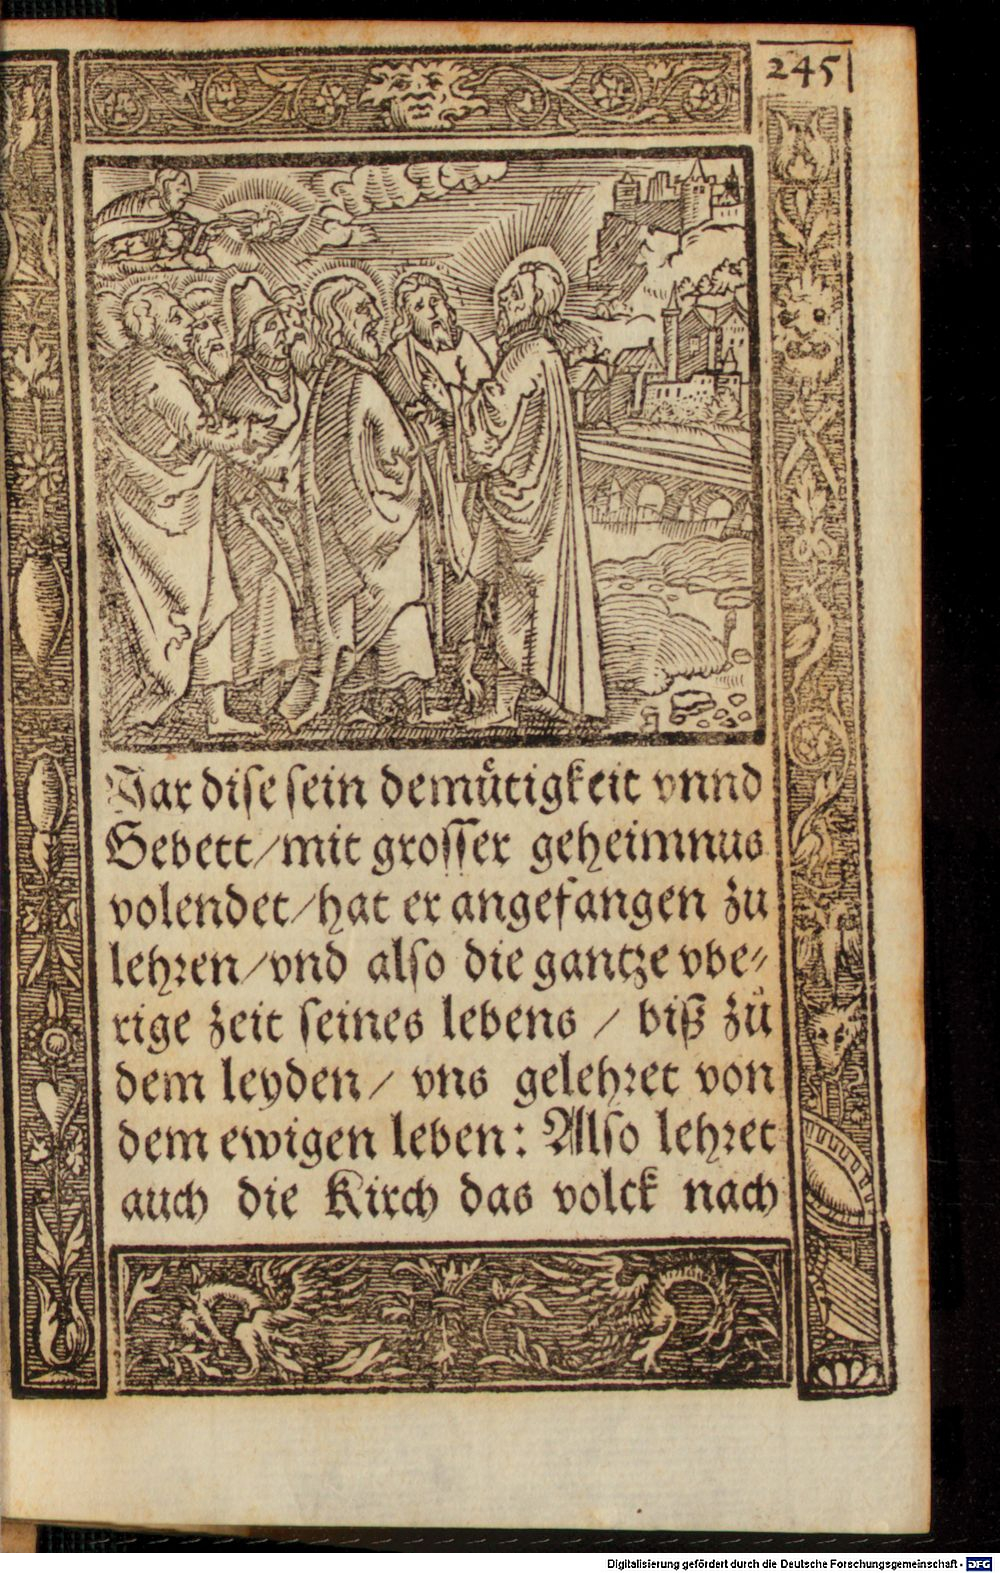 245
Nar dise sein demuͤtigkeit vnnd
Gebett/mit grosser geheimnus
volendet/hat er angefangen zu
lehren/vnd also die gantze vbe⸗
rige zeit seines lebens / biß zuͦ
dem leyden/ vns gelehret von
dem ewigen leben: Also lehret
auch die Kirch das volck nach
Digitalisierung gefördert durch die Deutsche Forschungsgemeinschaft - DFG